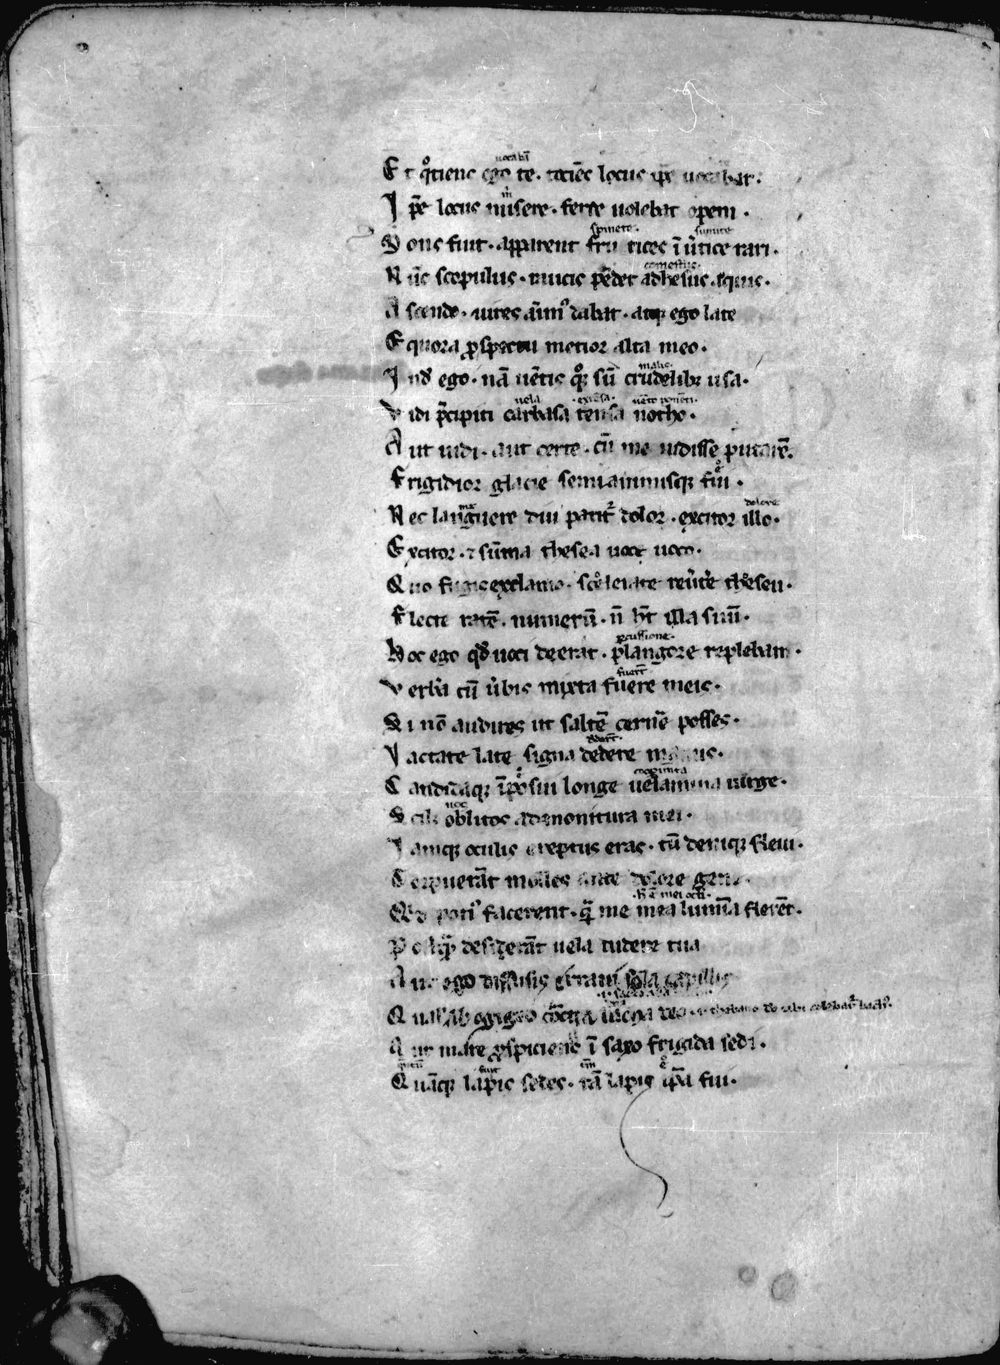 uocabā
Et qͦtiens ego te · tociēs locus ip̄e uocabat ·
Ip̄e locus misere · ferre uolebat opem ·
Mons fuit · apparent frutices ī ūtice rari ·
Nūc scopulus · raucis pēdet adhesus aquis ·
Ascendo · uires aīmꝰ dabat · atqꝫ ego late
Equora ꝓspectu metior alta meo ·
Indͤ ego · nā uētis qͦqꝫ sū crudelibꝫ usa ·
uela extēsa
Vidi p̄cipiti carbasa tensa notho ·
Aut uidi · aut certe · cū me uidisse putarē ·
Frigidior glacie semianimisqꝫ fui ·
dolore
Nec languere diu patitᷣ dolor · excitor illo ·
Excitor · ⁊ sūma thesea uoce uoco ·
Quo fugis exclamo · scelerate reūte theseu ·
Flecte ratē · numerū · n̄ hꝫ illa suū ·
ꝑcussione
Hoc ego qd̄ uoci deerat · plangore replebam ·
fuerūt
Verb̓a cū ūbis mixta fuere meis ·
Si nō audires ut saltē cern̄e posses ·
dederūt
Iactate late signa dedere manus ·
Candidaqꝫ īposui longe uelamina uirge ·
Scilꝫ oblitos admonitura mei ·
Iamqꝫ oculis ereptus eras · tū deniqꝫ fleui ·
Torpuerāt molles ante dolore gene ·
Qd̄ potiꝰ facerent · q̄ me mea lumīa flerēt ·
Postqͣ desierāt uela uidere tua
Aut ego diffusis erraui sola capillis
Qualʼ ab ogigio cōcita deo ·
Aut mare ꝓspiciens ī saxo frigida sedi ·
fuit
Quāqꝫ lapis sedes · tā lapis ip̄a fui ·